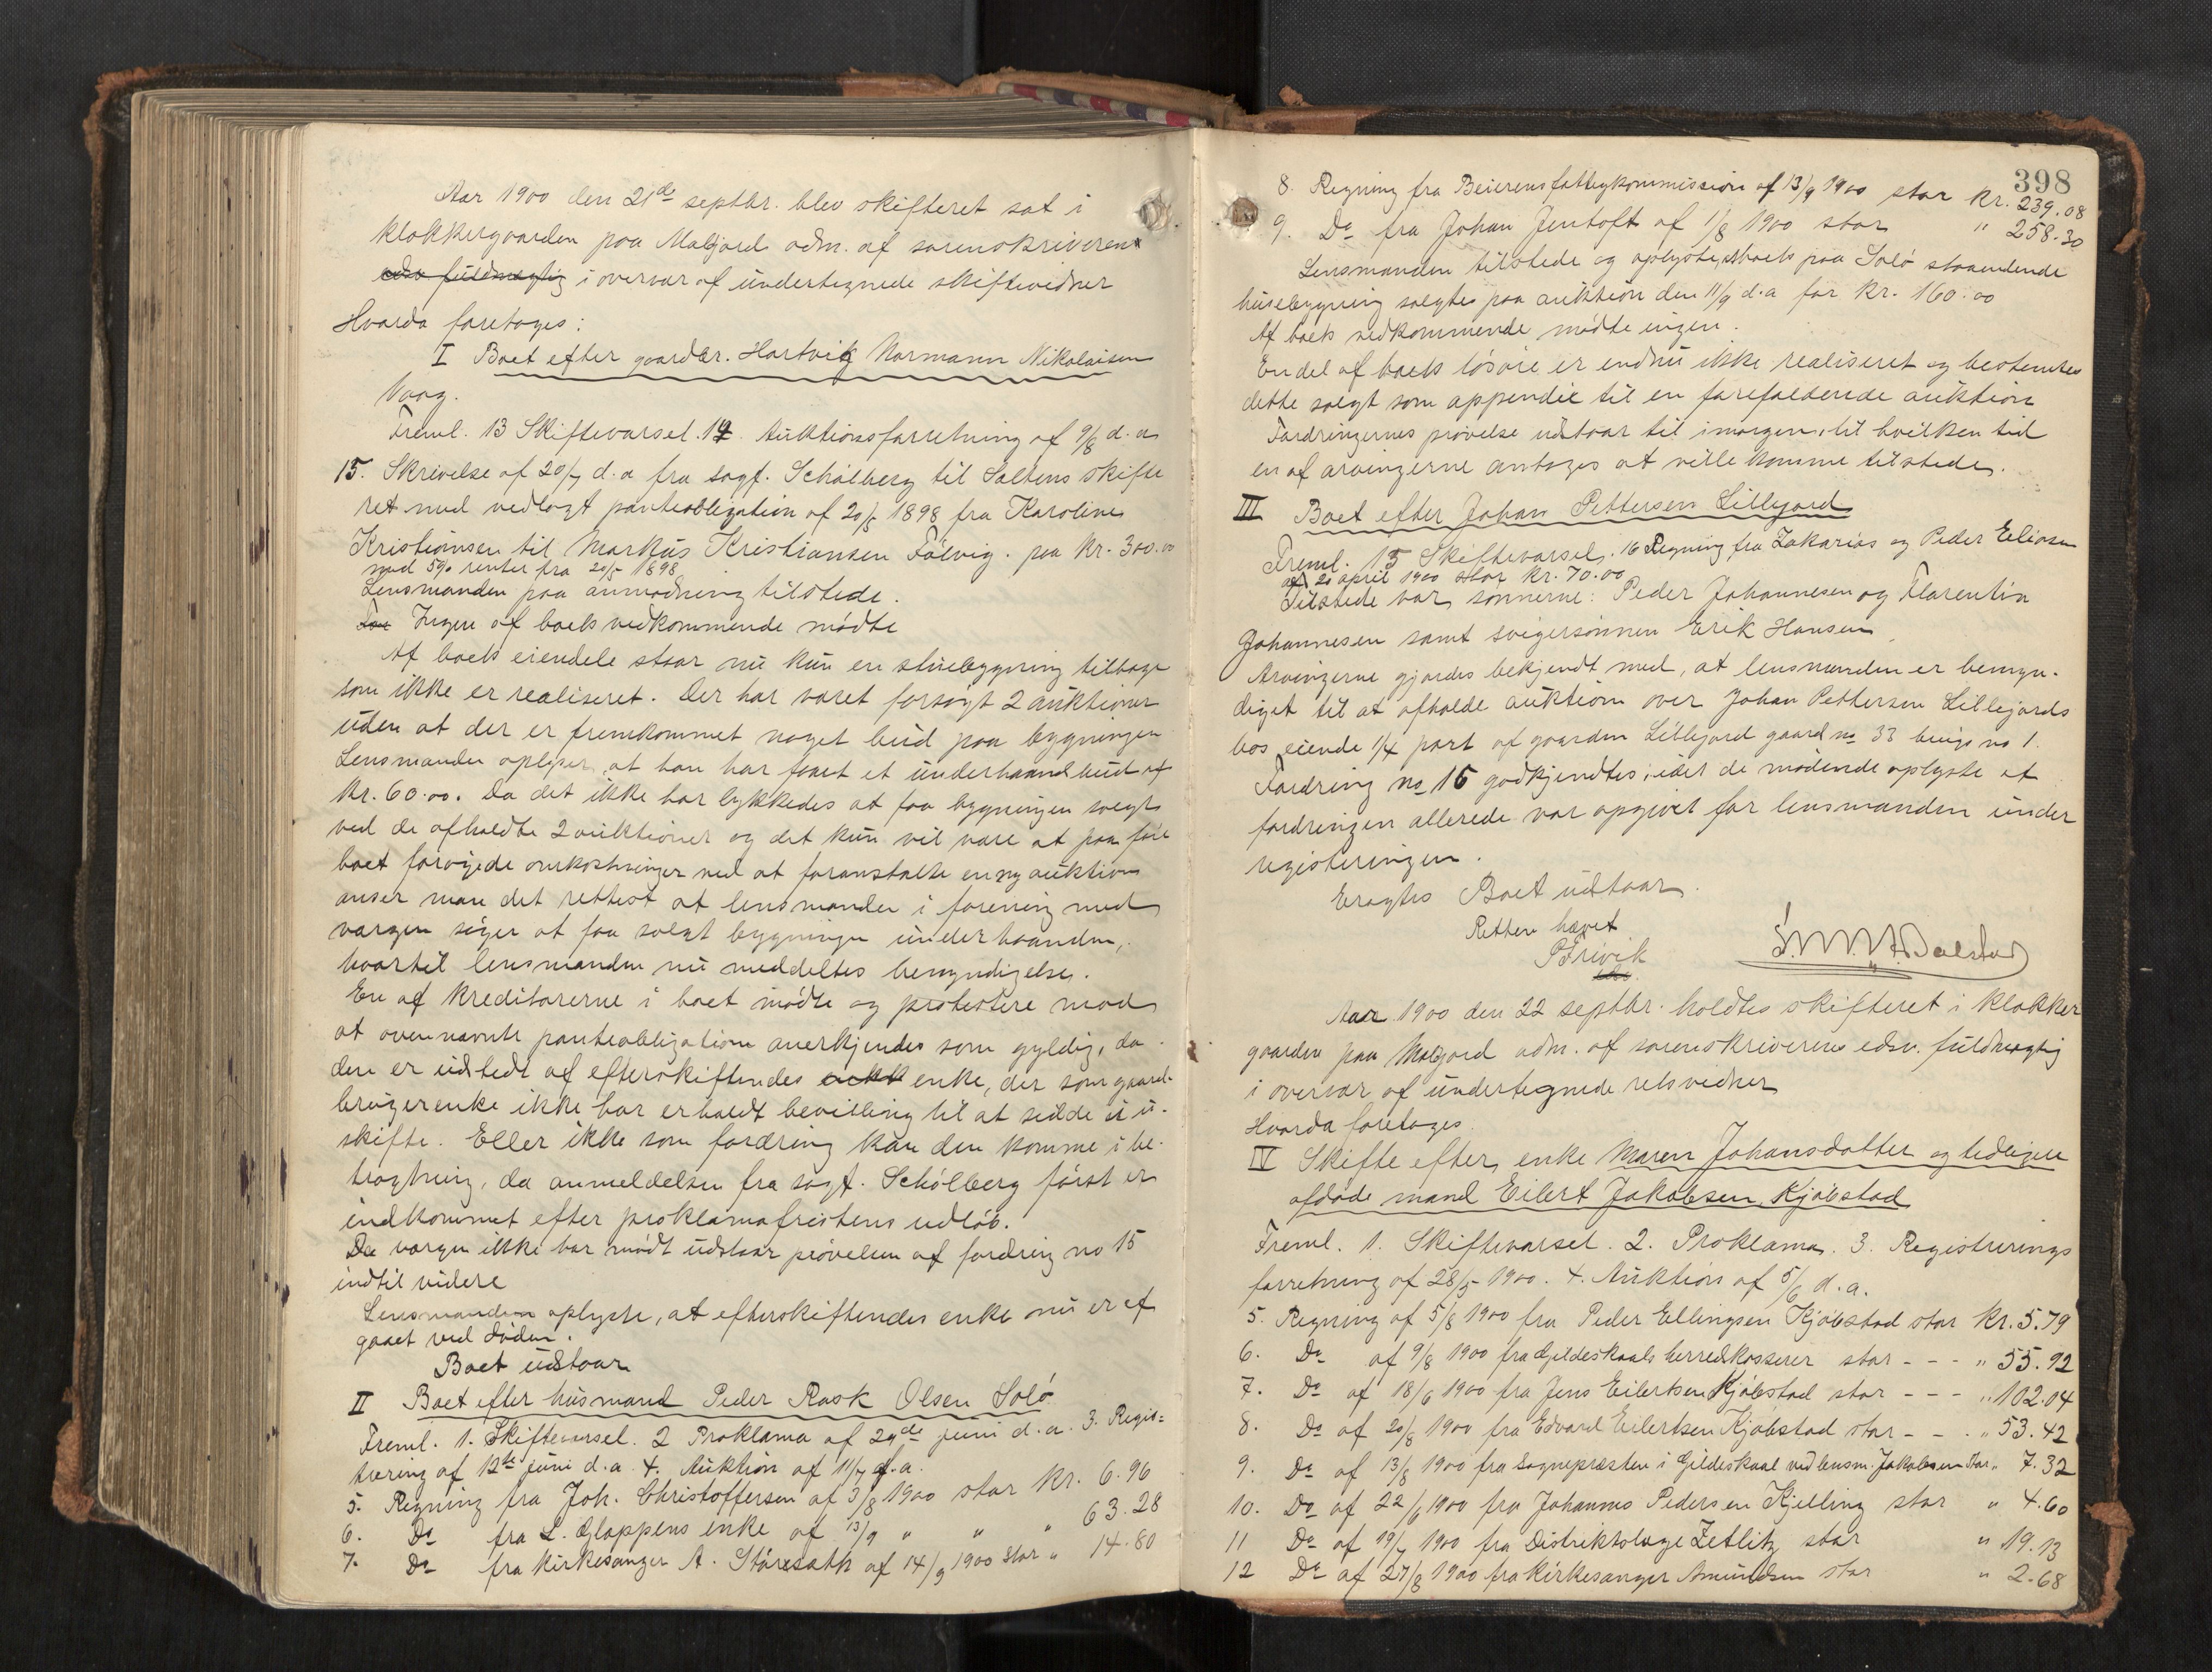 Aar 1900 den 21de septbr. blev skifteret sat i
klokkergaarden paa Malgjord adm. af sorenskriveren
edsv fuldmægtig i overvær af undertegnede skiftevidner
Hvorda foretoges:
I Boet efter gaardbr. Hartvig Normann Nikolaisen
Vaag.
Freml. 13 Skiftevarsel. 14. Auktionsforretning af 9/8 d. a
15. Skrivelse af 20/7 d. a fra sagf. Schølberg til Saltens skifte
ret med vedlagt panteobligation af 20/5 1898 fra Karoline
Kristiansen til Markus Kristiansen Følvig. paa kr. 300.00
med 5% renter fra 20/5 1898
Lensmanden paa anmodning tilstede.
Ingen af boets vedkommende mødte
Af boets eiendele staar nu kun en stuebygning tilbage
som ikke er realiseret. Der har været forsøgt 2 auktioner
uden at der er fremkommet noget bud paa bygningen
Lensmanden oplyser, at han har faaet et underhaandsbud af
kr. 60.00. Da det ikke har lykkedes at faa bygningen solgt
ved de afholdte 2 auktioner og det kun vil være at paaføre
boet forøgede omkostninger ved at foranstalte en ny auktion
anser man det rettest at lensmanden i forening med
værgen søger at faa solgt bygningen underhaanden,
hvortil lensmanden nu meddeltes bemyndigelse.
En af kreditorerne i boet mødte og protestere mod
at ovennævnte panteobligation anerkjendes som gyldig, da
den er udstedt af efterskiftendes enke, der som gaard-
brugerenke ikke har erholdt bevilling til at sidde i u-
skifte. Eller ikke som fordring kan den komme i be-
tragtning, da anmeldelsen fra sagf. Schølberg først er
indkommet efter proklamafristens udløb.
Da værgen ikke har mødt udstaar prøvelsen af fordring no 15
indtil videre
Lensmanden oplyste, at efterskiftendes enke nu er af
gaaet ved døden.
Boet udstaar
II Boet efter husmand Peder Rask Olsen Solø
Freml. 1. Skiftevarsel. 2 Proklama af 29de juni d. a. 3. Regis-
trering af 12te juni d. a 4. Auktion af 11/9 d. a.
5. Regning fra Joh. Christoffersen af 3/8 1900 stor kr. 6.96
6. Do fra L. Glappens enke af 13/9 " " " 63.28
7. Do fra kirkesanger A. Størseth af 14/9 1900 stor " 14.80
398
8. Regning fra Beierens fattigkommission af 13/9 1900 stor kr. 239.08
9. Do fra Johan Jentoft af 1/8 1900 stor " 258.30
Lensmanden tilstede og oplyste, at boets paa Solø staaendende
husebygning solgtes paa auktion den 11/9 d. a for kr. 160.00
Af boets vedkommende mødte ingen.
En del af boets løsøre er endnu ikke realiseret og bestemtes
dette solgt som appendix til en forefaldende auktion
Fordringernes prøvelse udstaar til imorgen, til hvilken tid
en af arvingerne antages at ville komme tilstede.
III Boet efter Johan Pettersen Lillejord
Freml. 15 Skiftevarsel. 16 Regning fra Zakarias og Peder Eliasen
af 20 april 1900 stor kr. 70.00
Tilstede var sønnerne: Peder Johannesen og Florentin
Johannesen samt svigersønnen Erik Hansen.
Arvingerne gjordes bekjendt med, at lensmanden er bemyn-
diget til at afholde auktion over Johan Pettersen Lillejords
bos eiende 1/4 part af gaarden Lillejord gaard no 33 brugs no 1.
Fordring no 16 godkjendtes, idet de mødende oplyste at
fordringen allerede var opgivet for lensmanden under
registeringen.
Eragtes Boet udstaar.
Retten hævet
Aar 1900 den 22 septbr. holdtes skifteret i klokker
gaarden paa Malgjord adm. af sorenskriverens edsv. fuldmægtig
i overvær af undertegnede retsvidner
Hvorda foretoges.
IV Skifte efter enke Maren Johansdatter og tidligere
afdøde mand Eilert Jakobsen Kjøbstad
Freml. 1. Skiftevarsel. 2. Proklama. 3. Registrerings
forretning af 28/5 1900. 4. Auktion af 5/6 d. a.
5. Regning af 5/8 1900 fra Peder Ellingsen Kjøbstad stor kr. 5.79
6. Do af 9/8 1900 fra Gildeskaals herredskasserer stor - - - " 55.92
7. Do af 18/6 1900 fra Jens Eilertsen Kjøbstad stor - - - " 102.04
8. Do af 20/8 1900 fra Edvard Eilertsen Kjøbstad stor - - . " 53.42
9. Do af 13/8 1900 fra Sognepræsten i Gildeskaal ved lensm. Jakobsen stor " 7.32
10. Do af 22/6 1900 fra Johannes Pedersen Kjelling stor " 4.60
11 Do af 19/7 1900 fra Distriktslæge Zetlitz stor " 19.13
12 Do af 27/8 1900 fra kirkesanger Amundsen stor " 2.68